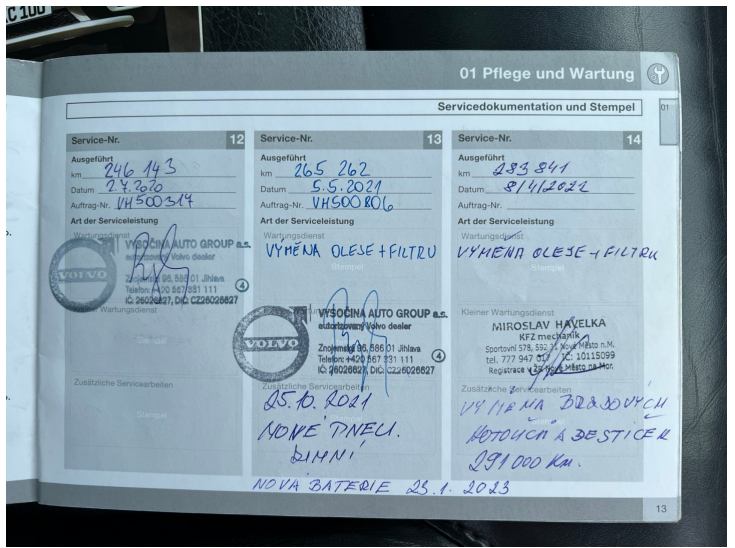 C 100
01 Pflege und Wartung
Servicedokumentation und Stempel
01
Service-Nr. 12
Ausgeführt
km 246 143
Datum 2.7.2020
Auftrag-Nr. VH500317
Art der Serviceleistung
Wartungsdienst
VYSOČINA AUTO GROUP a.s.
autorizovaný Volvo dealer
VOLVO
Znojemská 96, 586 01 Jihlava
Telefon: +420 567 331 111
IČ: 26026627, DIČ: CZ26026627
4
Kleiner Wartungsdienst
Stempel
Zusätzliche Servicearbeiten
Stempel
Service-Nr. 13
Ausgeführt
km 265 262
Datum 5.5.2021
Auftrag-Nr. VH500806
Art der Serviceleistung
Wartungsdienst
VÝMĚNA OLEJE + FILTRU
Stempel
VYSOČINA AUTO GROUP a.s.
autorizovaný Volvo dealer
VOLVO
Znojemská 96, 586 01 Jihlava
Telefon: +420 567 331 111
IČ: 26026627, DIČ: CZ26026627
4
Zusätzliche Servicearbeiten
25.10.2021
NOVÉ PNEU.
ZIMNÍ
Service-Nr. 14
Ausgeführt
km 283 841
Datum 8/4/2022
Auftrag-Nr.
Art der Serviceleistung
Wartungsdienst
VÝMĚNA OLEJE + FILTRU
Stempel
Kleiner Wartungsdienst
MIROSLAV HAVELKA
KFZ mechanik
Sportovní 578, 592 31 Nové Město n.M.
tel. 777 947 017 IČ: 10115099
Registrace v ŽR Nové Město na Mor.
Zusätzliche Servicearbeiten
VÝMĚNA BRZDOVÝCH
KOTOUČŮ A DESTIČEK
291 000 Km.
NOVÁ BATERIE 23.1.2023
13